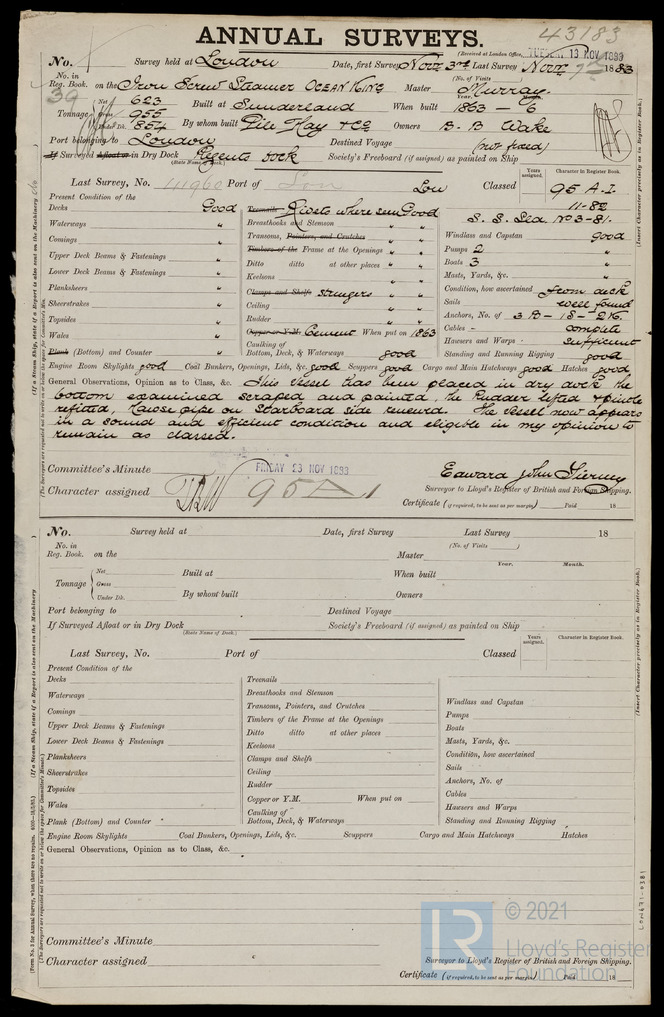 43183
ANNUAL SURVEYS.
(Received at London Office, TUESDAY 13 NOV 1883
No. Survey held at London Date, first Survey Novr 3rd Last Survey Novr 1883
No. in Reg. Book. 39 on the Iron Screw Steamer OCEAN KING (No. of Visits) Master Murray
Tonnage Net 623 Built at Sunderland When built 1863-6
Gross 955
Under Dk. 854 By whom built Pile Hay & Co Owners B. B. Wake
Port belonging to London Destined Voyage (not fixed)
If Surveyed Afloat or in Dry Dock Regents dock Society's Freeboard (if assigned) as painted on Ship
(State Name of Dock.)
Years assigned. Character in Register Book.
Last Survey, No. Port of Lon Lon Classed 95 A.1.
11-82
S. S. Lon No 3-81.
Present Condition of the
Decks Good
Waterways "
Comings "
Upper Deck Beams & Fastenings "
Lower Deck Beams & Fastenings "
Planksheers "
Sheerstrakes "
Topsides "
Wales "
Plank (Bottom) and Counter "
Treenails Rivets where seen Good
Breasthooks and Stemson " "
Transoms, Pointers, and Crutches " "
Timbers of the Frame at the Openings " "
Ditto ditto at other places " "
Keelsons " "
Clamps and Shelfs stringers " "
Ceiling " "
Rudder " "
Copper or Y.M. Cement When put on 1863
Caulking of
Bottom, Deck, & Waterways good
Windlass and Capstan good
Pumps 2 "
Boats 3 "
Masts, Yards, &c. "
Condition, how ascertained from deck
Sails well found
Anchors, No. of 3 B - 1 S - 2 K.
Cables - complete
Hawsers and Warps - sufficient
Standing and Running Rigging good
Engine Room Skylights good Coal Bunkers, Openings, Lids, &c. good Scuppers good Cargo and Main Hatchways good Hatches good
General Observations, Opinion as to Class, &c. This vessel has been placed in dry dock the
bottom examined scraped and painted, the Rudder lifted & pintle
refitted, Hawse pipe on Starboard side renewed. The vessel now appears
in a sound and efficient condition and eligible in my opinion to
remain as classed.
Committee's Minute FRIDAY 23 NOV 1883
Character assigned 95 A 1
Edward John Tierney
Surveyor to Lloyd's Register of British and Foreign Shipping.
Certificate (if required, to be sent as per margin) Paid 18
No. Survey held at Date, first Survey Last Survey 18
(No. of Visits )
No. in Reg. Book. on the Master
Year. Month.
Tonnage Net Built at When built
Gross
Under Dk. By whom built Owners
Port belonging to Destined Voyage
If Surveyed Afloat or in Dry Dock Society's Freeboard (if assigned) as painted on Ship
(State Name of Dock.)
Years assigned. Character in Register Book.
Last Survey, No. Port of Classed
Present Condition of the
Decks
Waterways
Comings
Upper Deck Beams & Fastenings
Lower Deck Beams & Fastenings
Planksheers
Sheerstrakes
Topsides
Wales
Plank (Bottom) and Counter
Treenails
Breasthooks and Stemson
Transoms, Pointers, and Crutches
Timbers of the Frame at the Openings
Ditto ditto at other places
Keelsons
Clamps and Shelfs
Ceiling
Rudder
Copper or Y.M. When put on
Caulking of
Bottom, Deck, & Waterways
Windlass and Capstan
Pumps
Boats
Masts, Yards, &c.
Condition, how ascertained
Sails
Anchors, No. of
Cables
Hawsers and Warps
Standing and Running Rigging
Engine Room Skylights Coal Bunkers, Openings, Lids, &c. Scuppers Cargo and Main Hatchways Hatches
General Observations, Opinion as to Class, &c.
Committee's Minute
Character assigned
Surveyor to Lloyd's Register of British and Foreign Shipping.
Certificate (if required, to be sent as per margin) Paid 18
LON671-0381
© 2021
LR
Lloyd's Register
Foundation
(If a Steam Ship, state if a Report is also sent on the Machinery
(Insert Character precisely as in Register Book.)
(If a Steam Ship, state if a Report is also sent on the Machinery
(Insert Character precisely as in Register Book.)